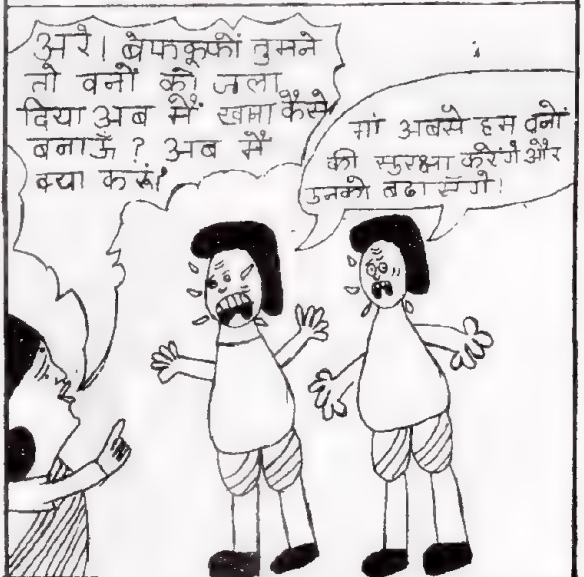 अरे! बेफकूफों तुमने
तो वनों को जला
दिया अब मैं खाना कैसे
बनाऊँ? अब मैं
क्या करूं!
मां अबसे हम वनों
की सुरक्षा करेंगे और
उनको बढायेंगे!